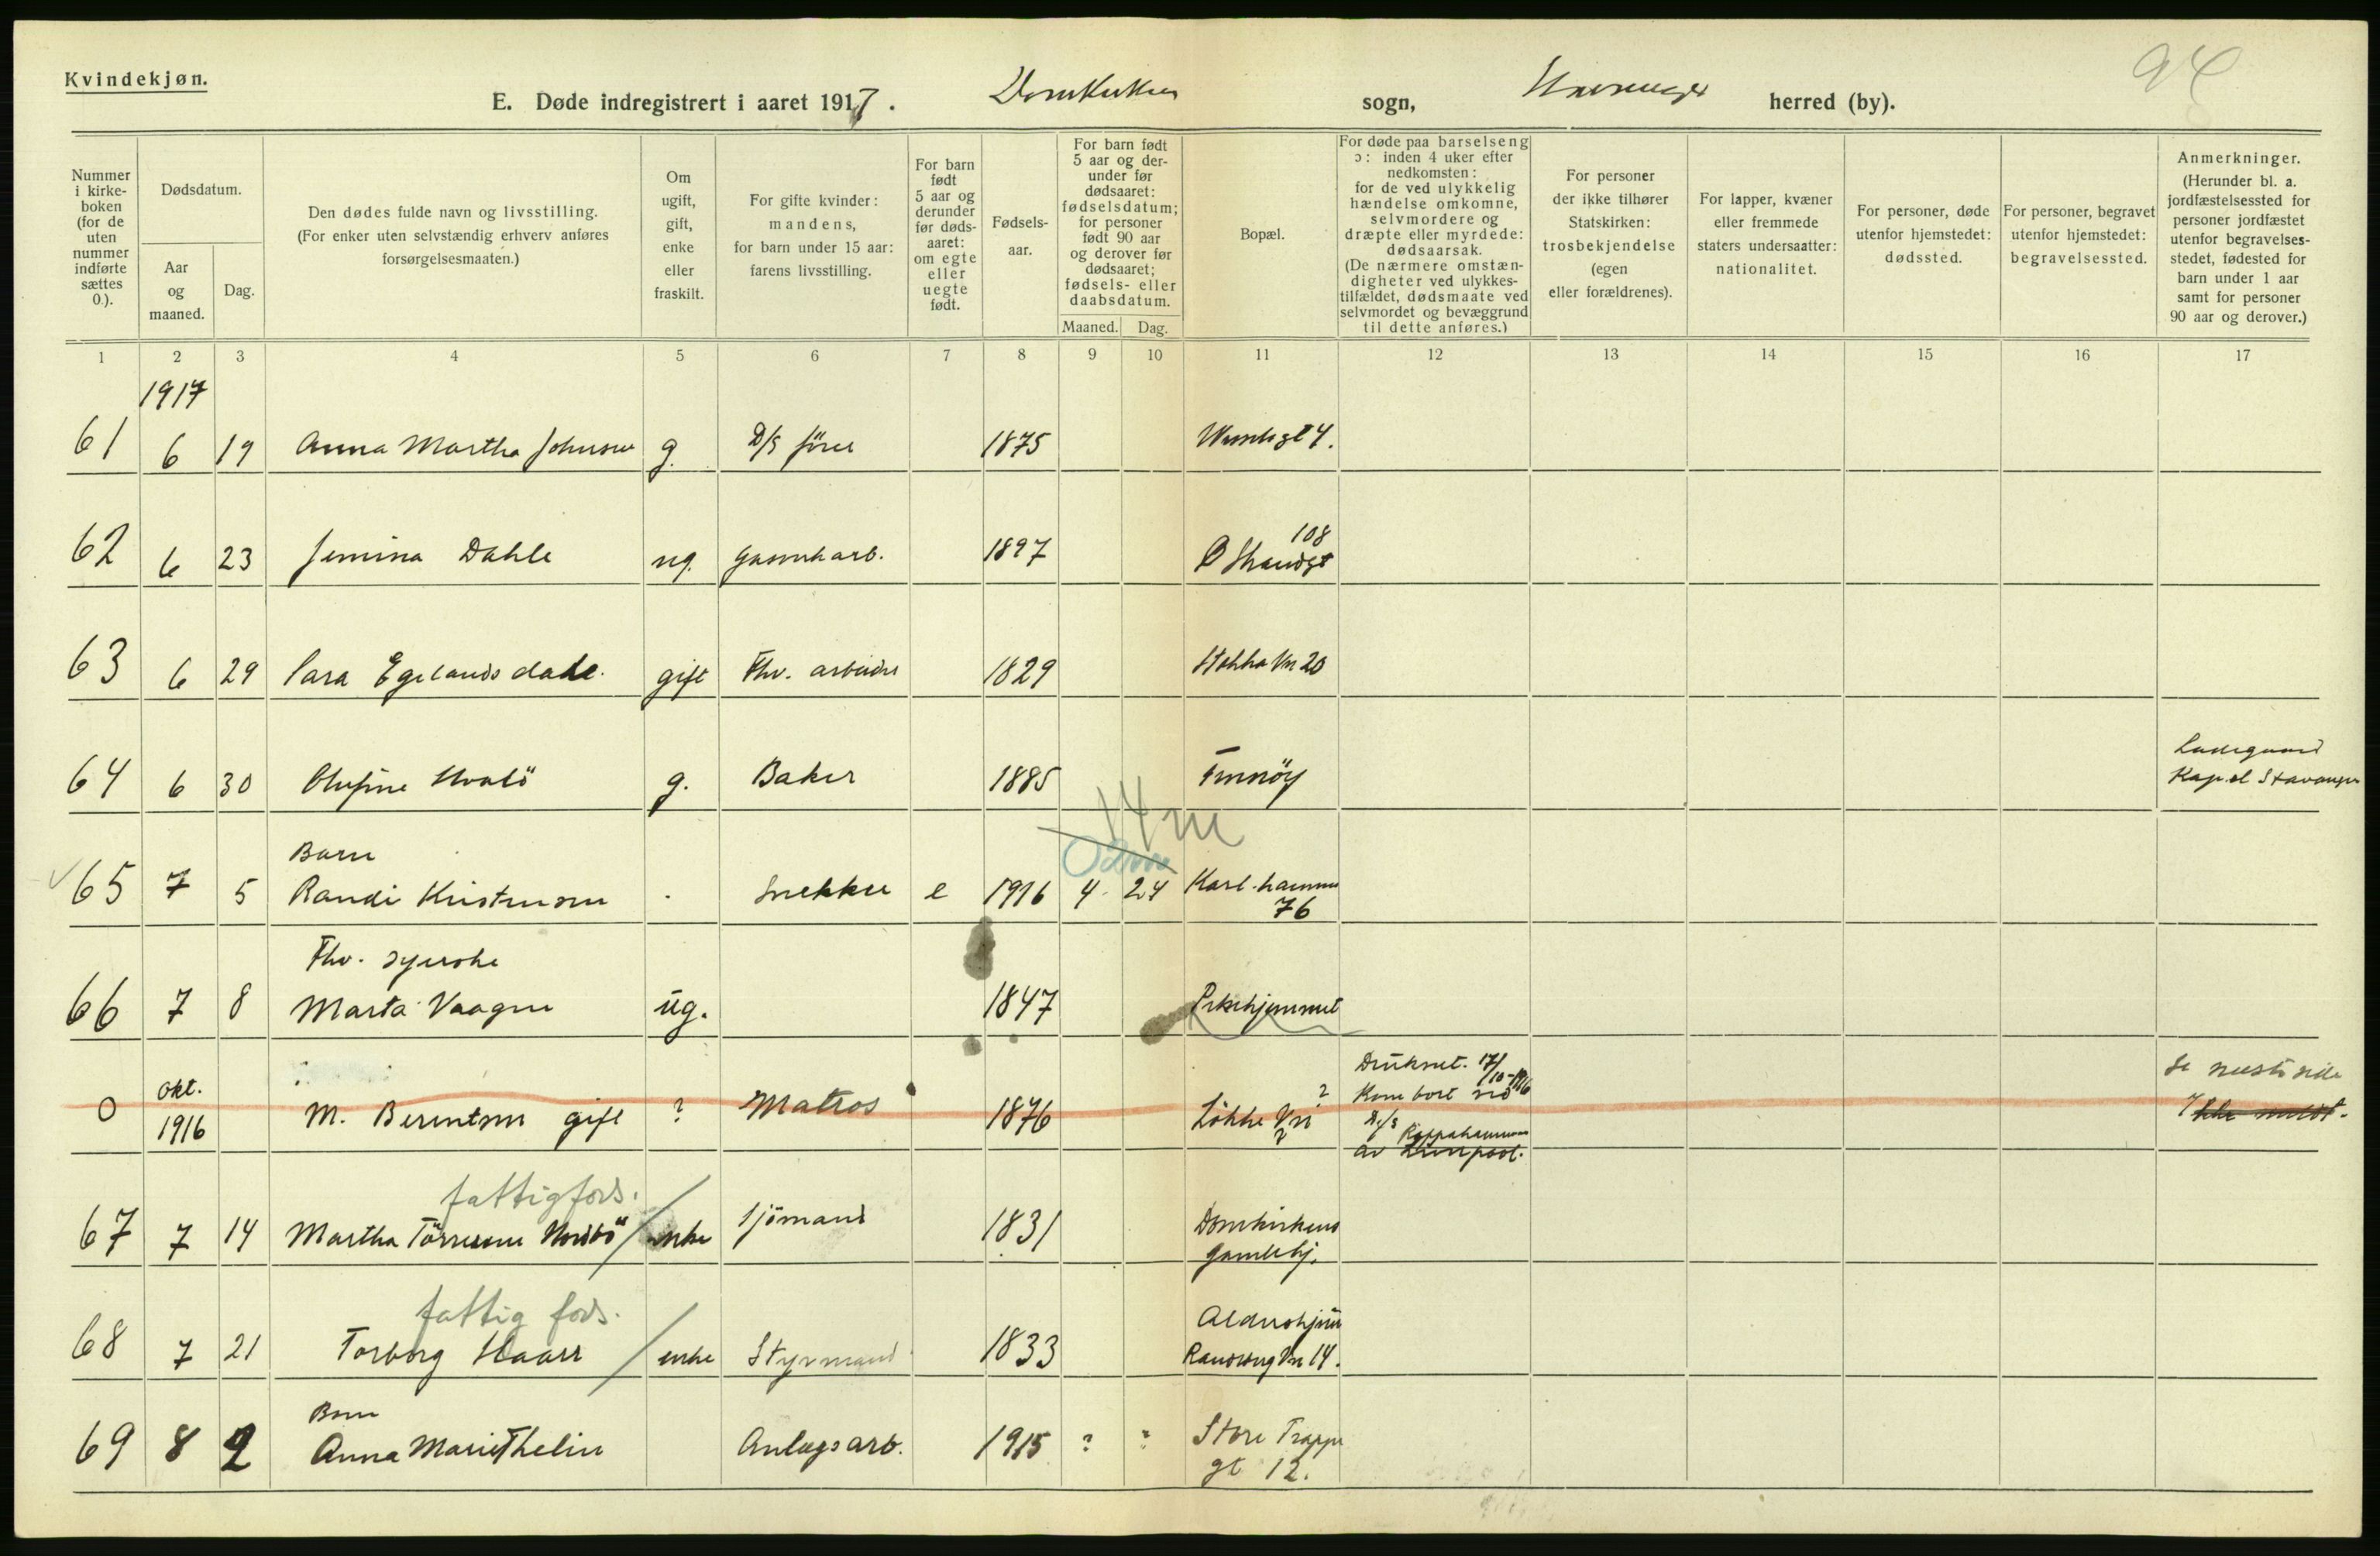 Kvindekjøn.
E. Døde indregistrert i aaret 1917. Domkirken sogn, Stavanger herred (by).
94
Nummer i kirke-boken (for de uten nummer indførte sættes 0.).
Dødsdatum.
Aar og maaned.
Dag.
Den dødes fulde navn og livsstilling.
(For enker uten selvstændig erhverv anføres forsørgelsesmaaten.)
Om ugift, gift, enke eller fraskilt.
For gifte kvinder: mandens, for barn under 15 aar: farens livsstilling.
For barn født 5 aar og derunder før døds-aaret: om egte eller uegte født.
Fødsels-aar.
For barn født 5 aar og der-under før dødsaaret: fødselsdatum; for personer født 90 aar og derover før dødsaaret; fødsels- eller daabsdatum.
Maaned. Dag.
Bopæl.
For døde paa barselseng ɔ: inden 4 uker efter nedkomsten: for de ved ulykkelig hændelse omkomne, selvmordere og dræpte eller myrdede: dødsaarsak.
(De nærmere omstæn-digheter ved ulykkes-tilfældet, dødsmaate ved selvmordet og bevæggrund til dette anføres.)
For personer der ikke tilhører Statskirken: trosbekjendelse (egen eller forældrenes).
For lapper, kvæner eller fremmede staters undersaatter: nationalitet.
For personer, døde utenfor hjemstedet: dødssted.
For personer, begravet utenfor hjemstedet: begravelsessted.
Anmerkninger.
(Herunder bl. a. jordfæstelsessted for personer jordfæstet utenfor begravelses-stedet, fødested for barn under 1 aar samt for personer 90 aar og derover.)
1 2 3 4 5 6 7 8 9 10 11 12 13 14 15 16 17
1917
61 6 19 Anna Martha Johnsen g. D/S fører 1875
62 6 23 Jemina Dahle ug. Gasverkarb. 1897 Ø Strandgt 108
63 6 29 Sara Egelandsdale. gift Fhv. arbeider 1829 Stokka Vn 20
64 6 30 Olufine Hvalö g. Baker 1885 Finnöy Ladegaard Kapel Stavanger
14 m
65 7 5 Barn Randi Kristensen - Snekker e 1916 4 24 Karl-hammer 76
66 7 8 Fhv. syerske Marta Vaagen ug. 1847 Pleiehjemmet
0 okt. 1916 M. Berentsen gift ? Matros 1876 Løkke Vn ? ? Druknet. 17/10-1916 Kom bort ved D/S Rappahannoc av Liverpool. Se neste side Ikke meldt.
fattigfors.
67 7 14 Martha Törresen Nordbö enke Sjömand 1831 Domkirkens gamlehj.
fattig fors.
68 7 21 Torborg Haarr enke Styrmand 1833 Aldershjem Ramsvig Vn 14.
69 8 2 Barn Anna Marie Thelin Anlægsarb. 1915 ? ? Store Trappe gt 12.